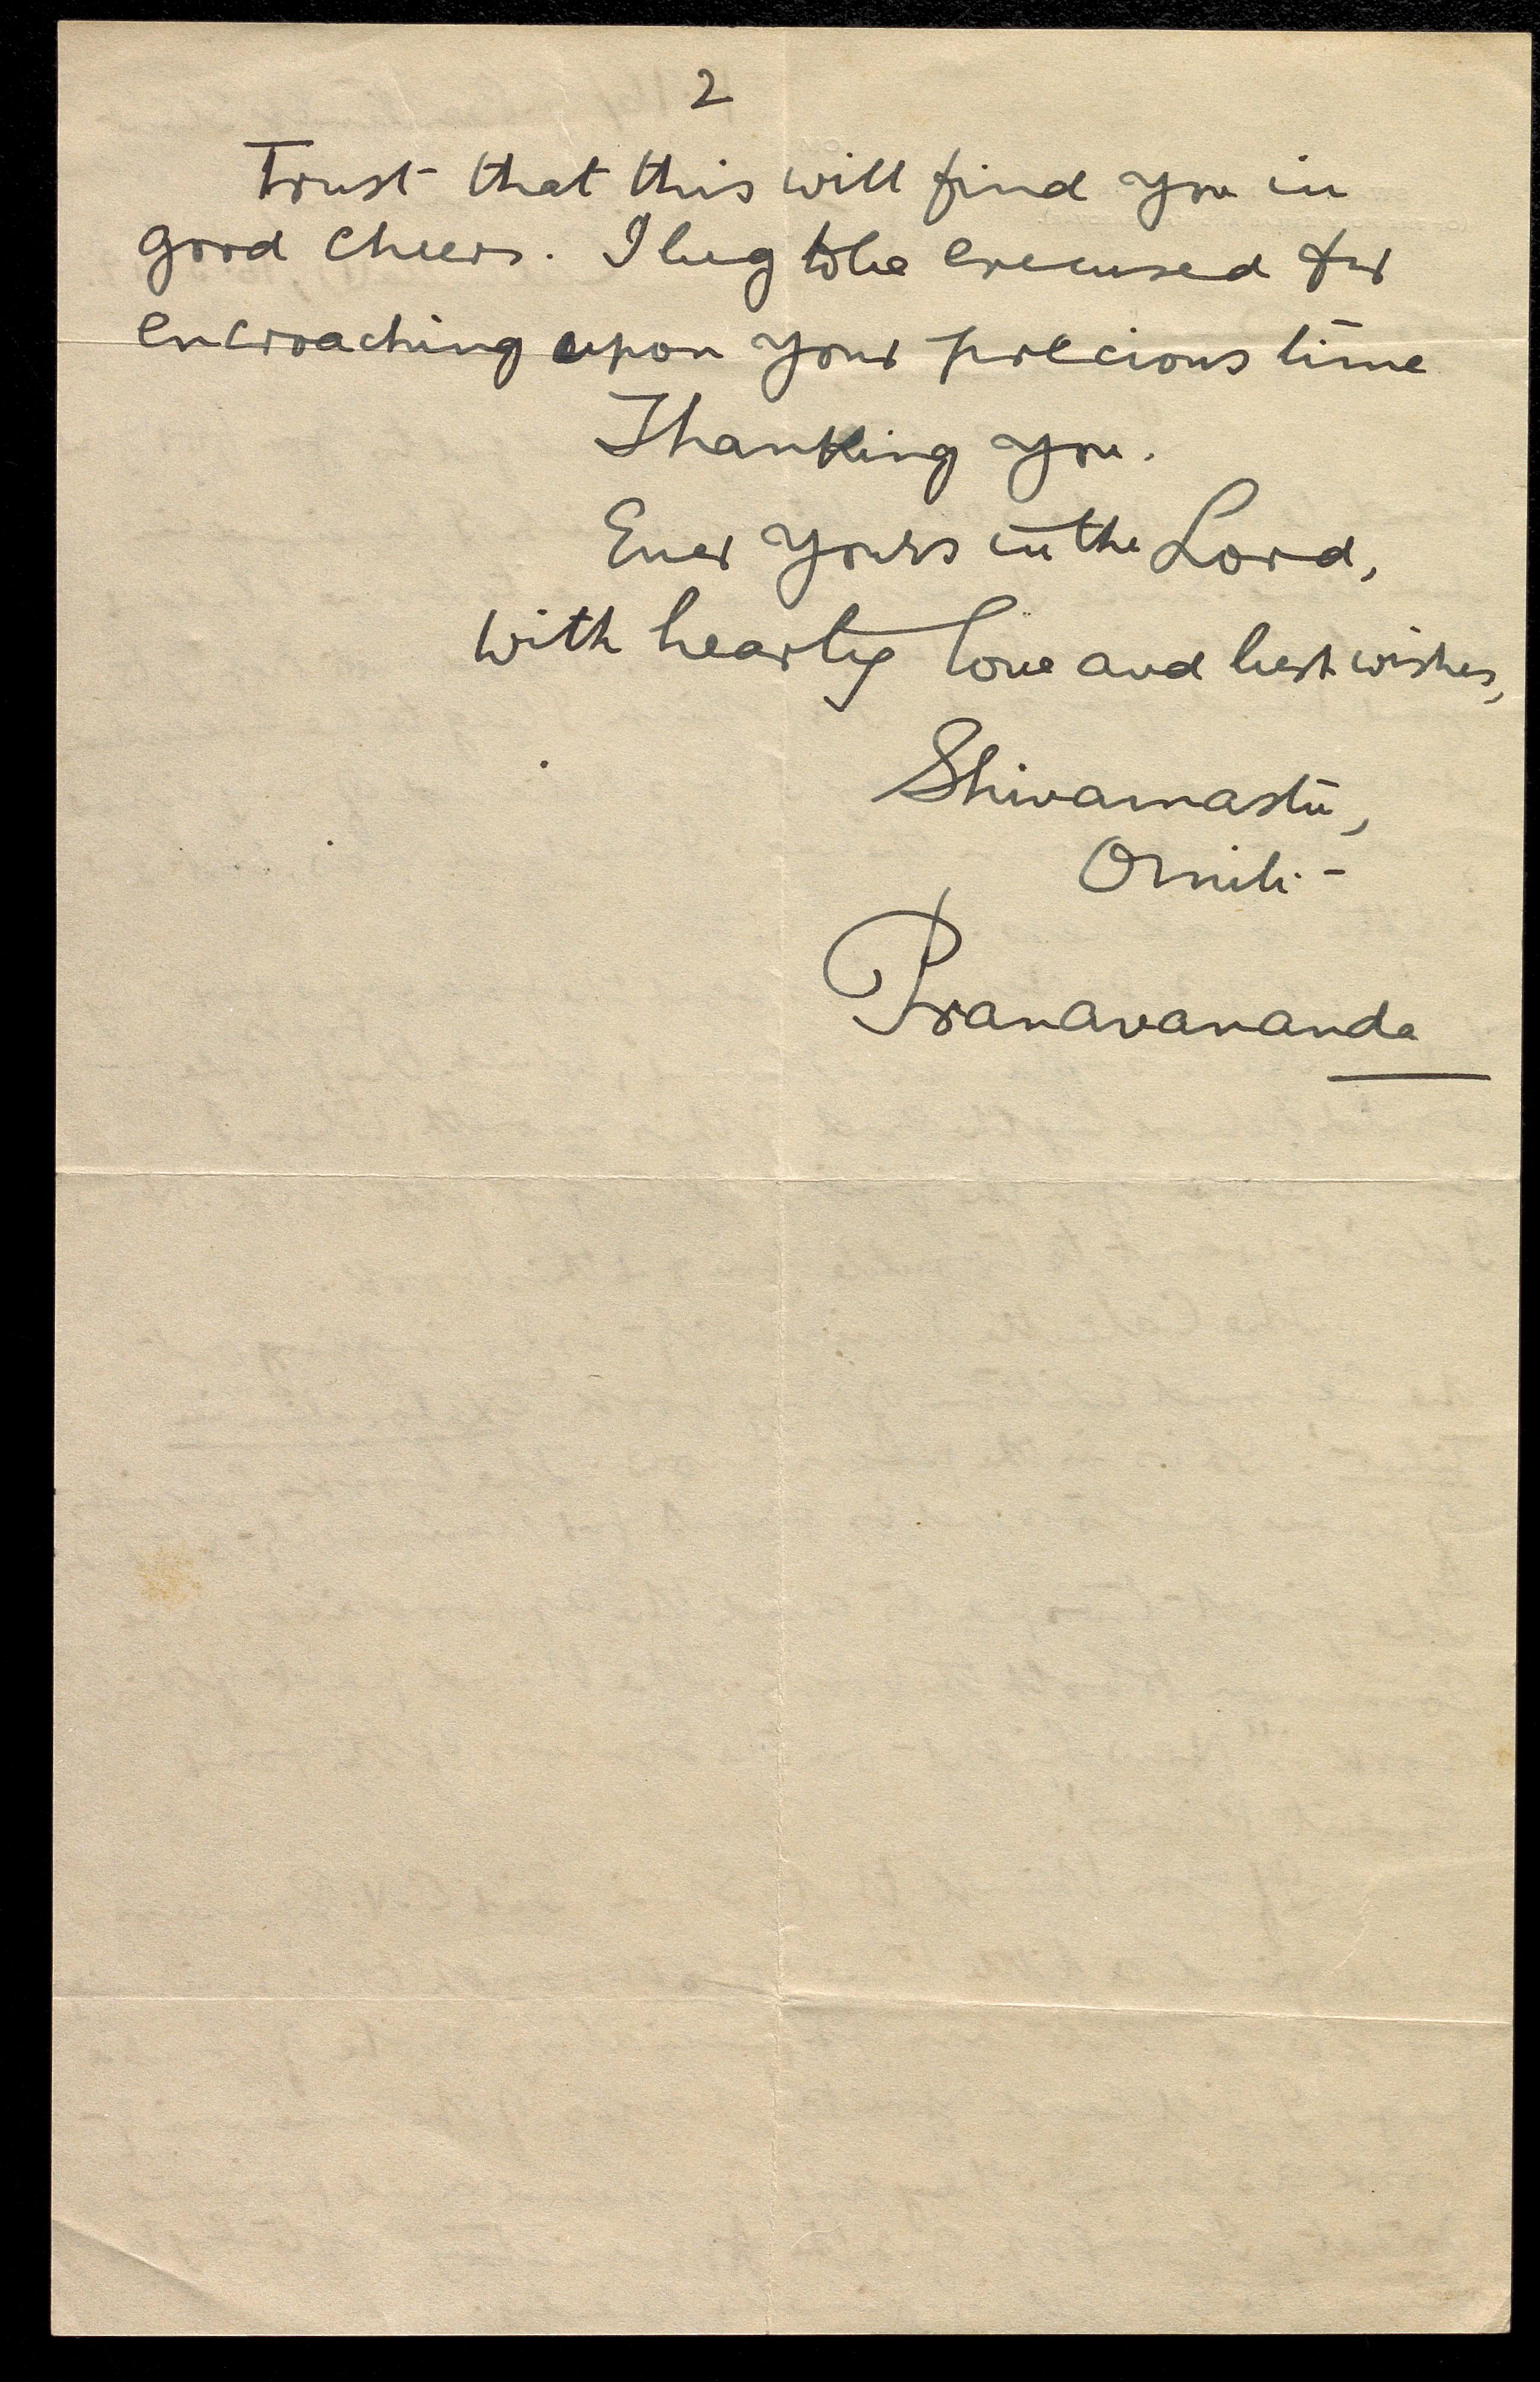 2
Trust that this will find you in
good cheers. I beg to be excused for
encroaching upon your precious time
Thanking you.
Ever yours in the Lord,
with hearty love and best wishes,
Shivamastu,
Pranavananda